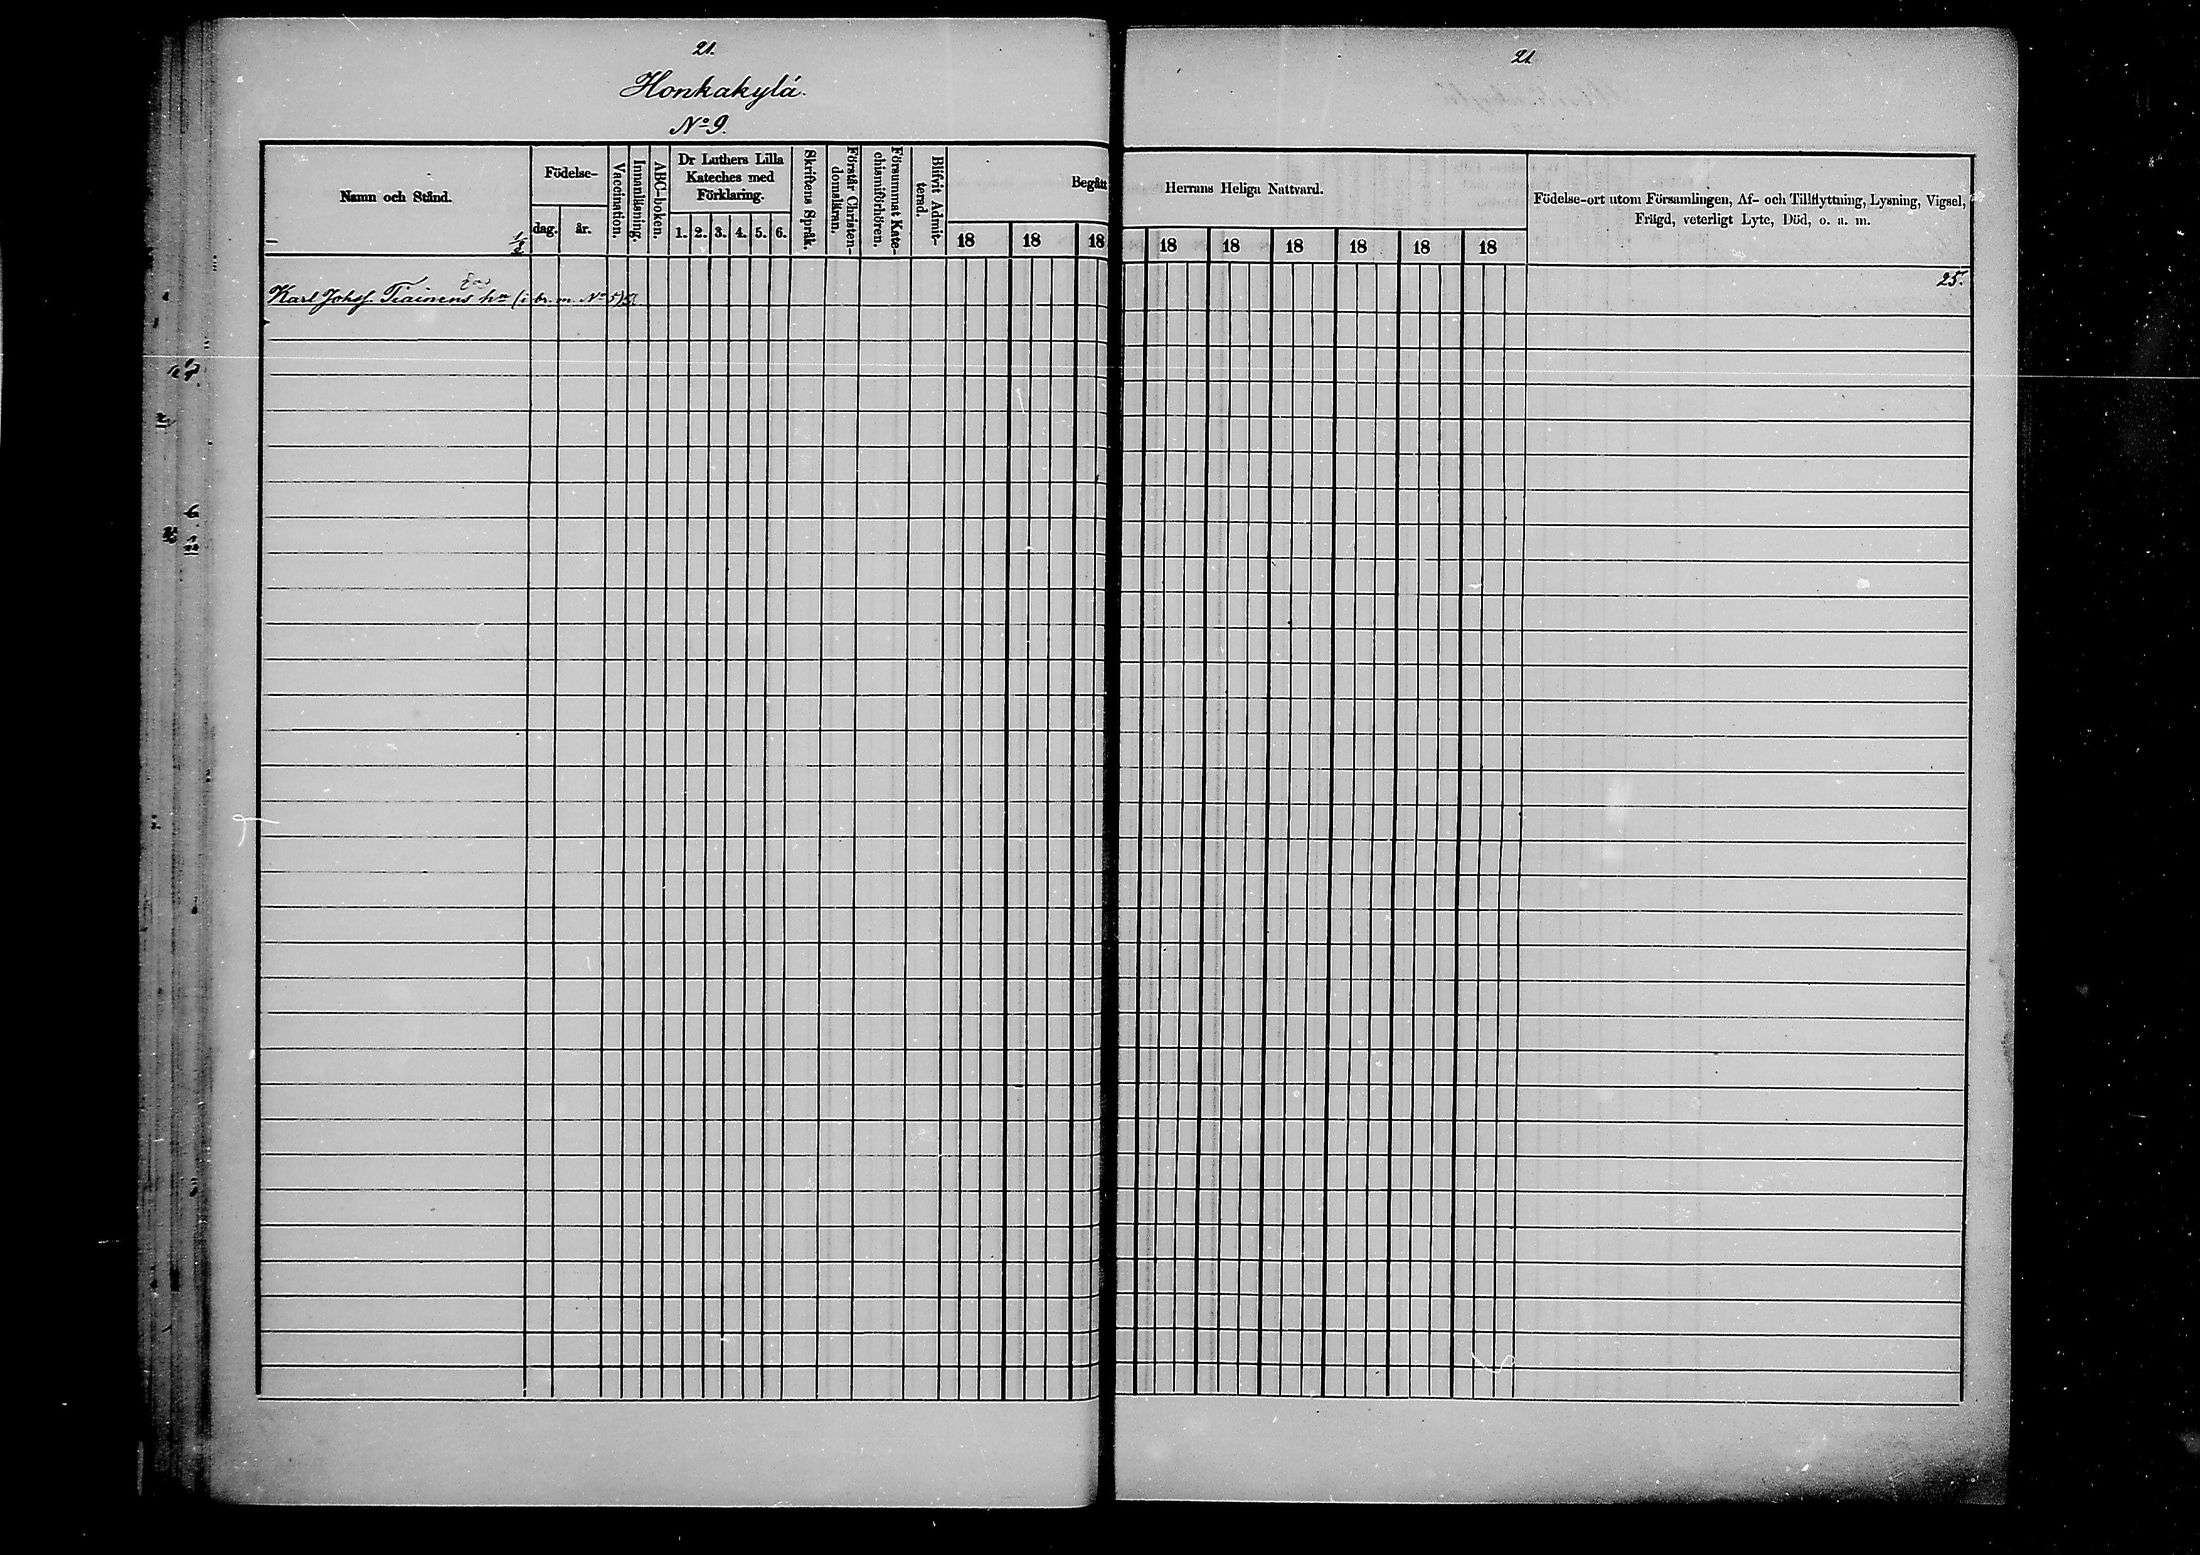 21.
Honkakylä.
No 9.
Namn och Stånd.
Födelse-
dag.
år.
Vaccination.
Innanläsning.
ABC-boken.
Dr Luthers Lilla
Kateches med
Förklaring.
1. 2. 3. 4. 5. 6.
Skriftens Språk.
Förstår Christen-
domsläran.
Försummat Kate-
chismiförhören.
Blifvit Admit-
terad.
Begått
18 18 18
1/2
Karl Johsf. Tiainens hn (i br. m. No 5)
21
Herrans Heliga Nattvard.
18 18 18 18 18 18
Födelse-ort utom Församlingen, Af- och Tillflyttning, Lysning, Vigsel,
Frägd, veterligt Lyte, Död, o. a. m.
25.